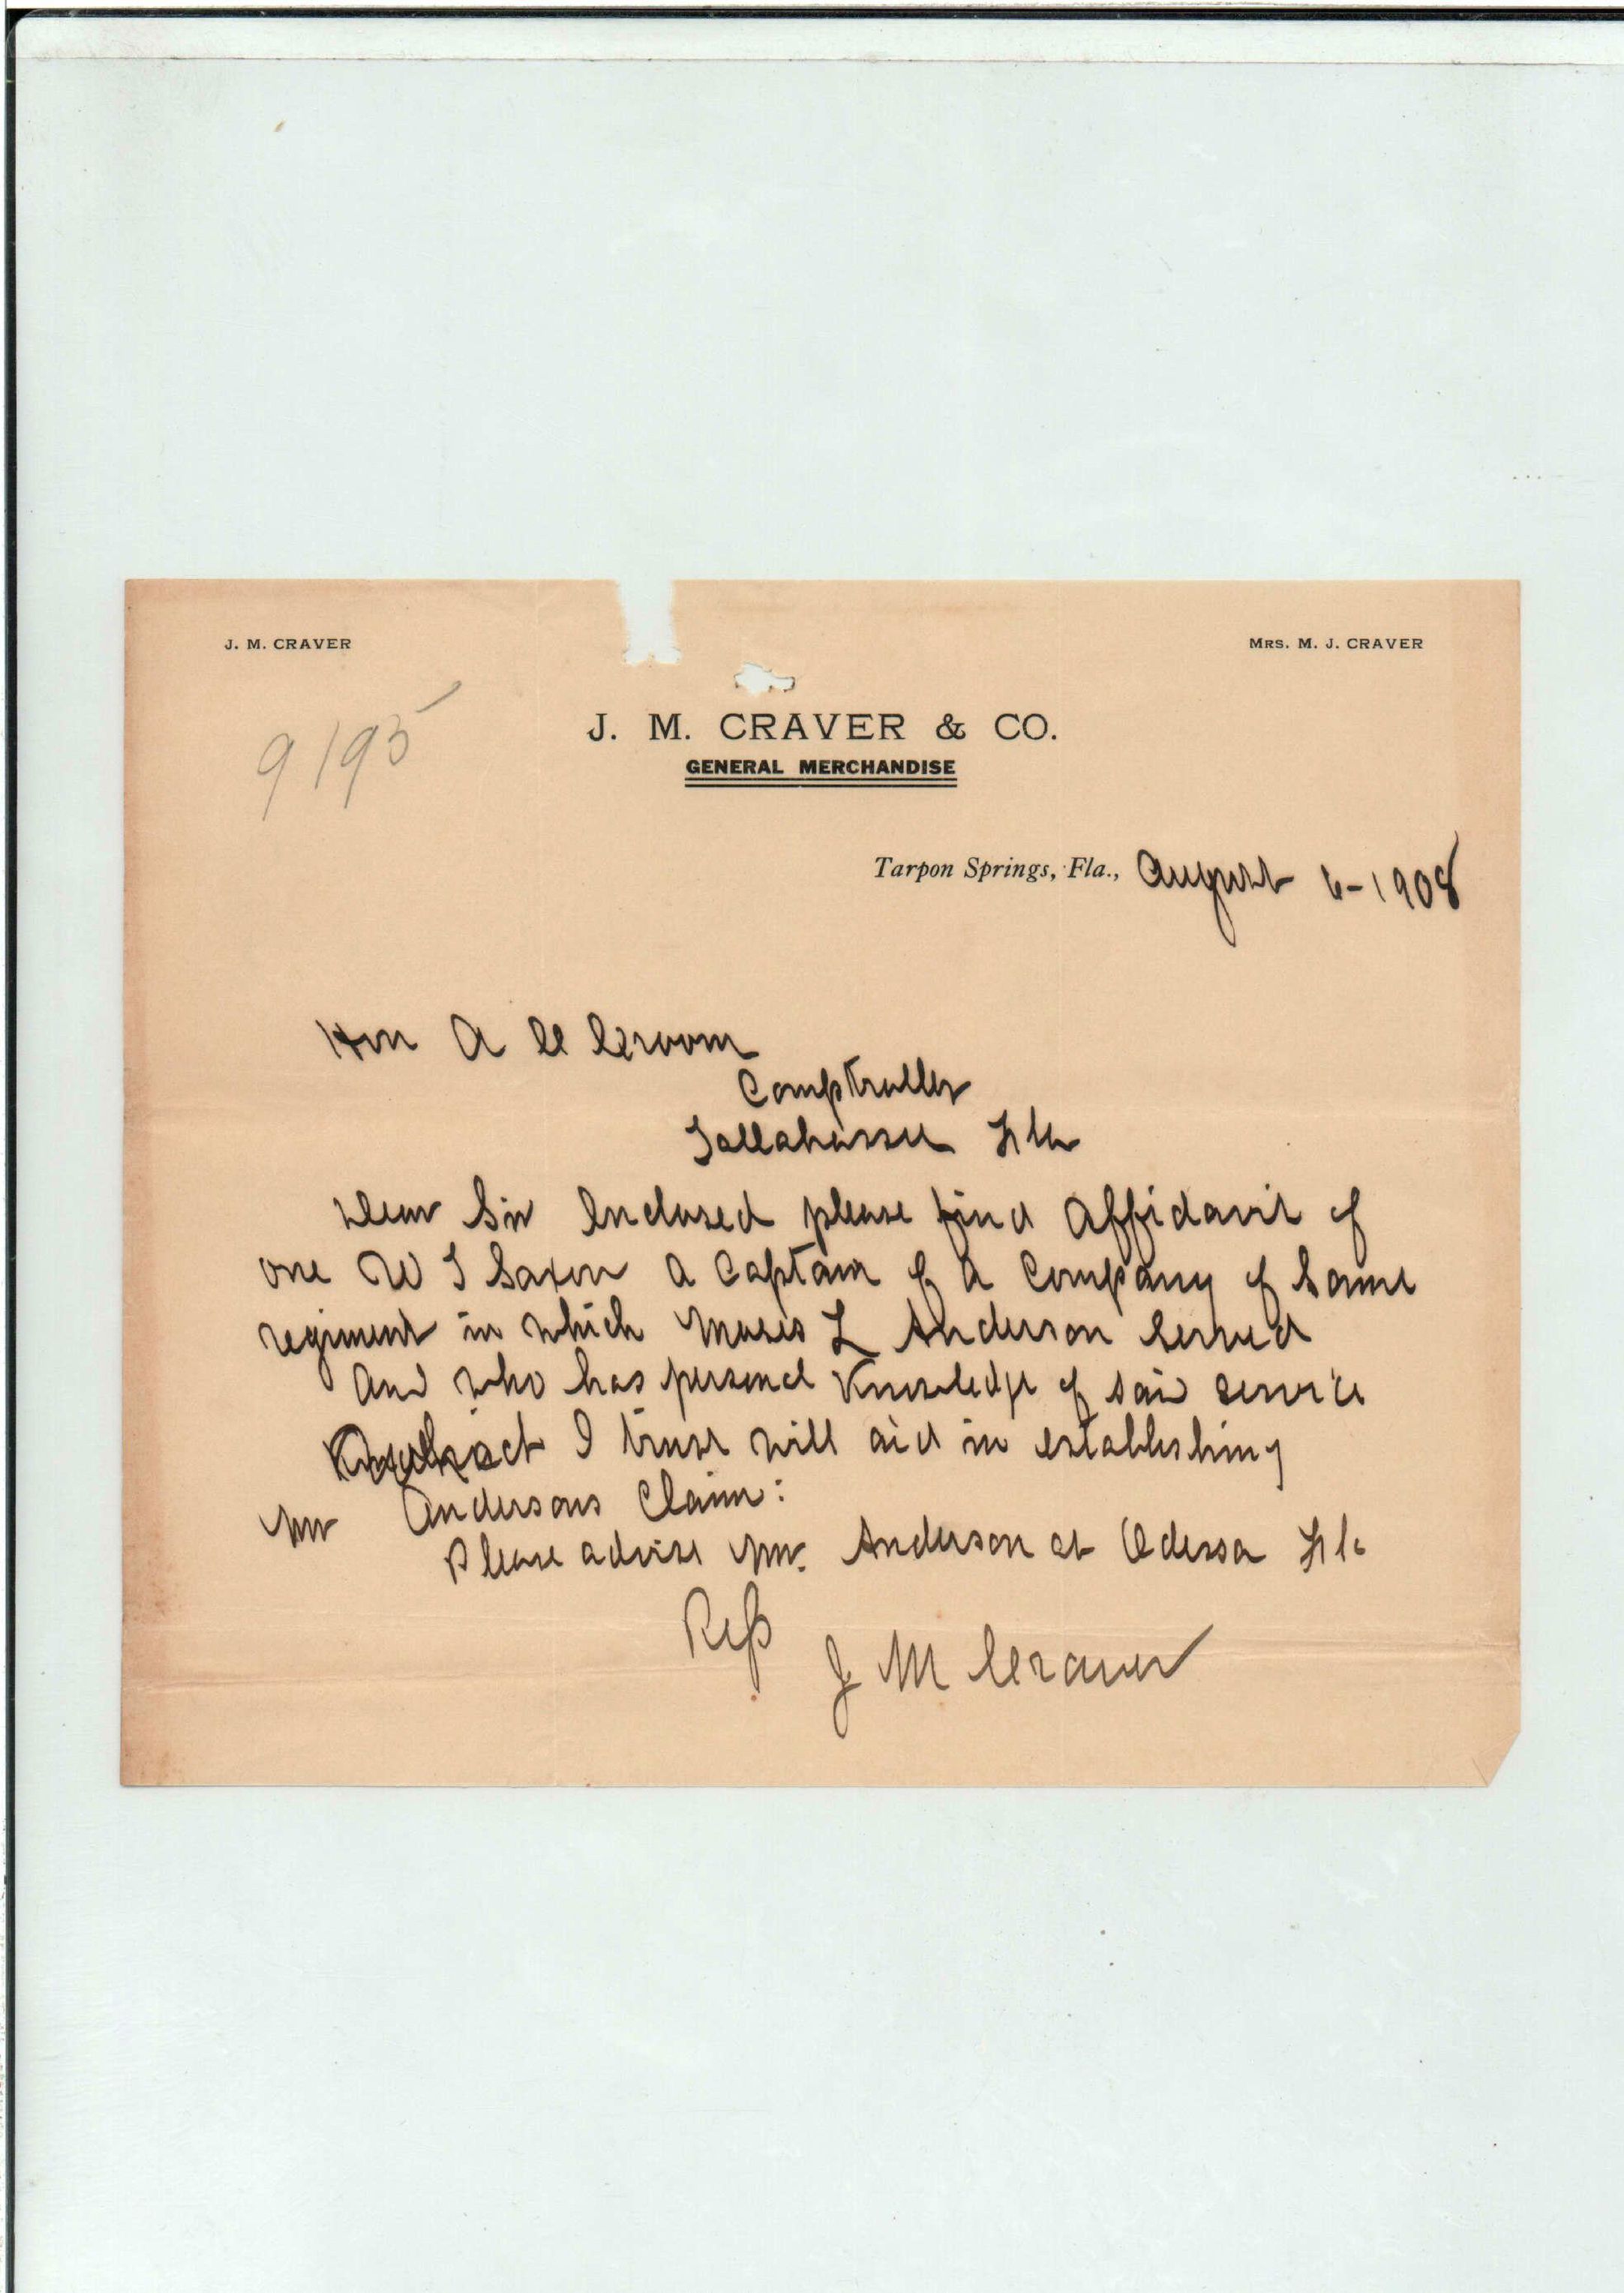 J. M. CRAVER
MRS. M. J. CRAVER
9195
J. M. CRAVER & CO.
GENERAL MERCHANDISE
Tarpon Springs, Fla., August 6-1908
Hon A C Croom
Comptroller
Tallahassee Fla
Dear Sir Enclosed please find Affidavit of
one W J Saxon a Captain of a Company of Same
regiment in which Moses L Anderson served
and who has personal Knowledge of said service
I trust will aid in establishing
Mr Andersons Claim:
Please advise Mr. Anderson at Odessa Fla
Resp
J M Craver